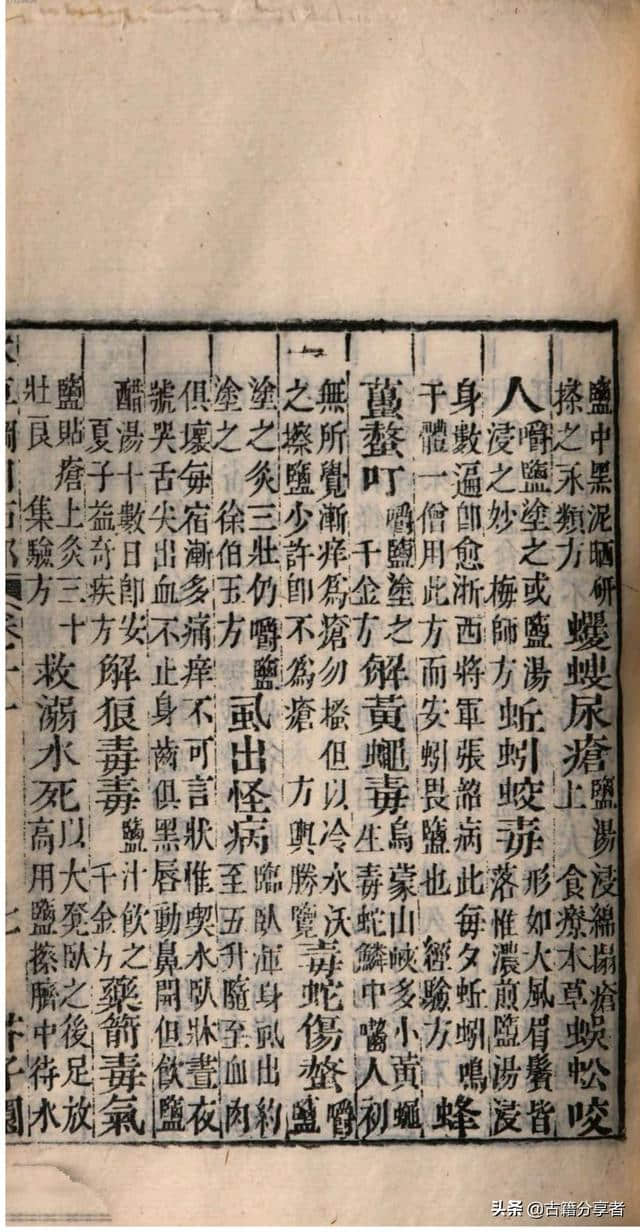 鹽中黑泥晒研搽之永類方蠼螋尿瘡鹽湯浸綿搨瘡上食療本草蜈蚣咬
人嚼鹽塗之或鹽湯浸之妙梅師方蚯蚓蛟毒形如大風眉鬢皆落惟濃煎鹽湯浸
身數遍卽愈浙西將軍張韶病此每夕蚯蚓鳴于體一僧用此方而安蚓畏鹽也經驗方蜂
蠆螫叮嚼鹽塗之千金方解黃蠅毒烏蒙山峽多小黃蠅生毒蛇鱗中嚙人初
無所覺漸痒爲瘡勿搔但以冷水沃之擦鹽少許卽不爲瘡方輿勝覽毒蛇傷螫嚼鹽
塗之灸三壯仍嚼鹽塗之徐伯玉方虱出怪病臨臥渾身虱出約至五升隨至血肉
俱壞每宿漸多痛痒不可言狀惟喫水臥牀晝夜號哭舌尖出血不止身齒俱黑唇動鼻開但飲鹽
醋湯十數日卽安夏子益奇疾方解狼毒毒鹽汁飲之千金方藥箭毒氣
鹽貼瘡上灸三十壯良集驗方救溺水死以大凳臥之後足放高用鹽擦臍中待水
头条 @古籍分享者